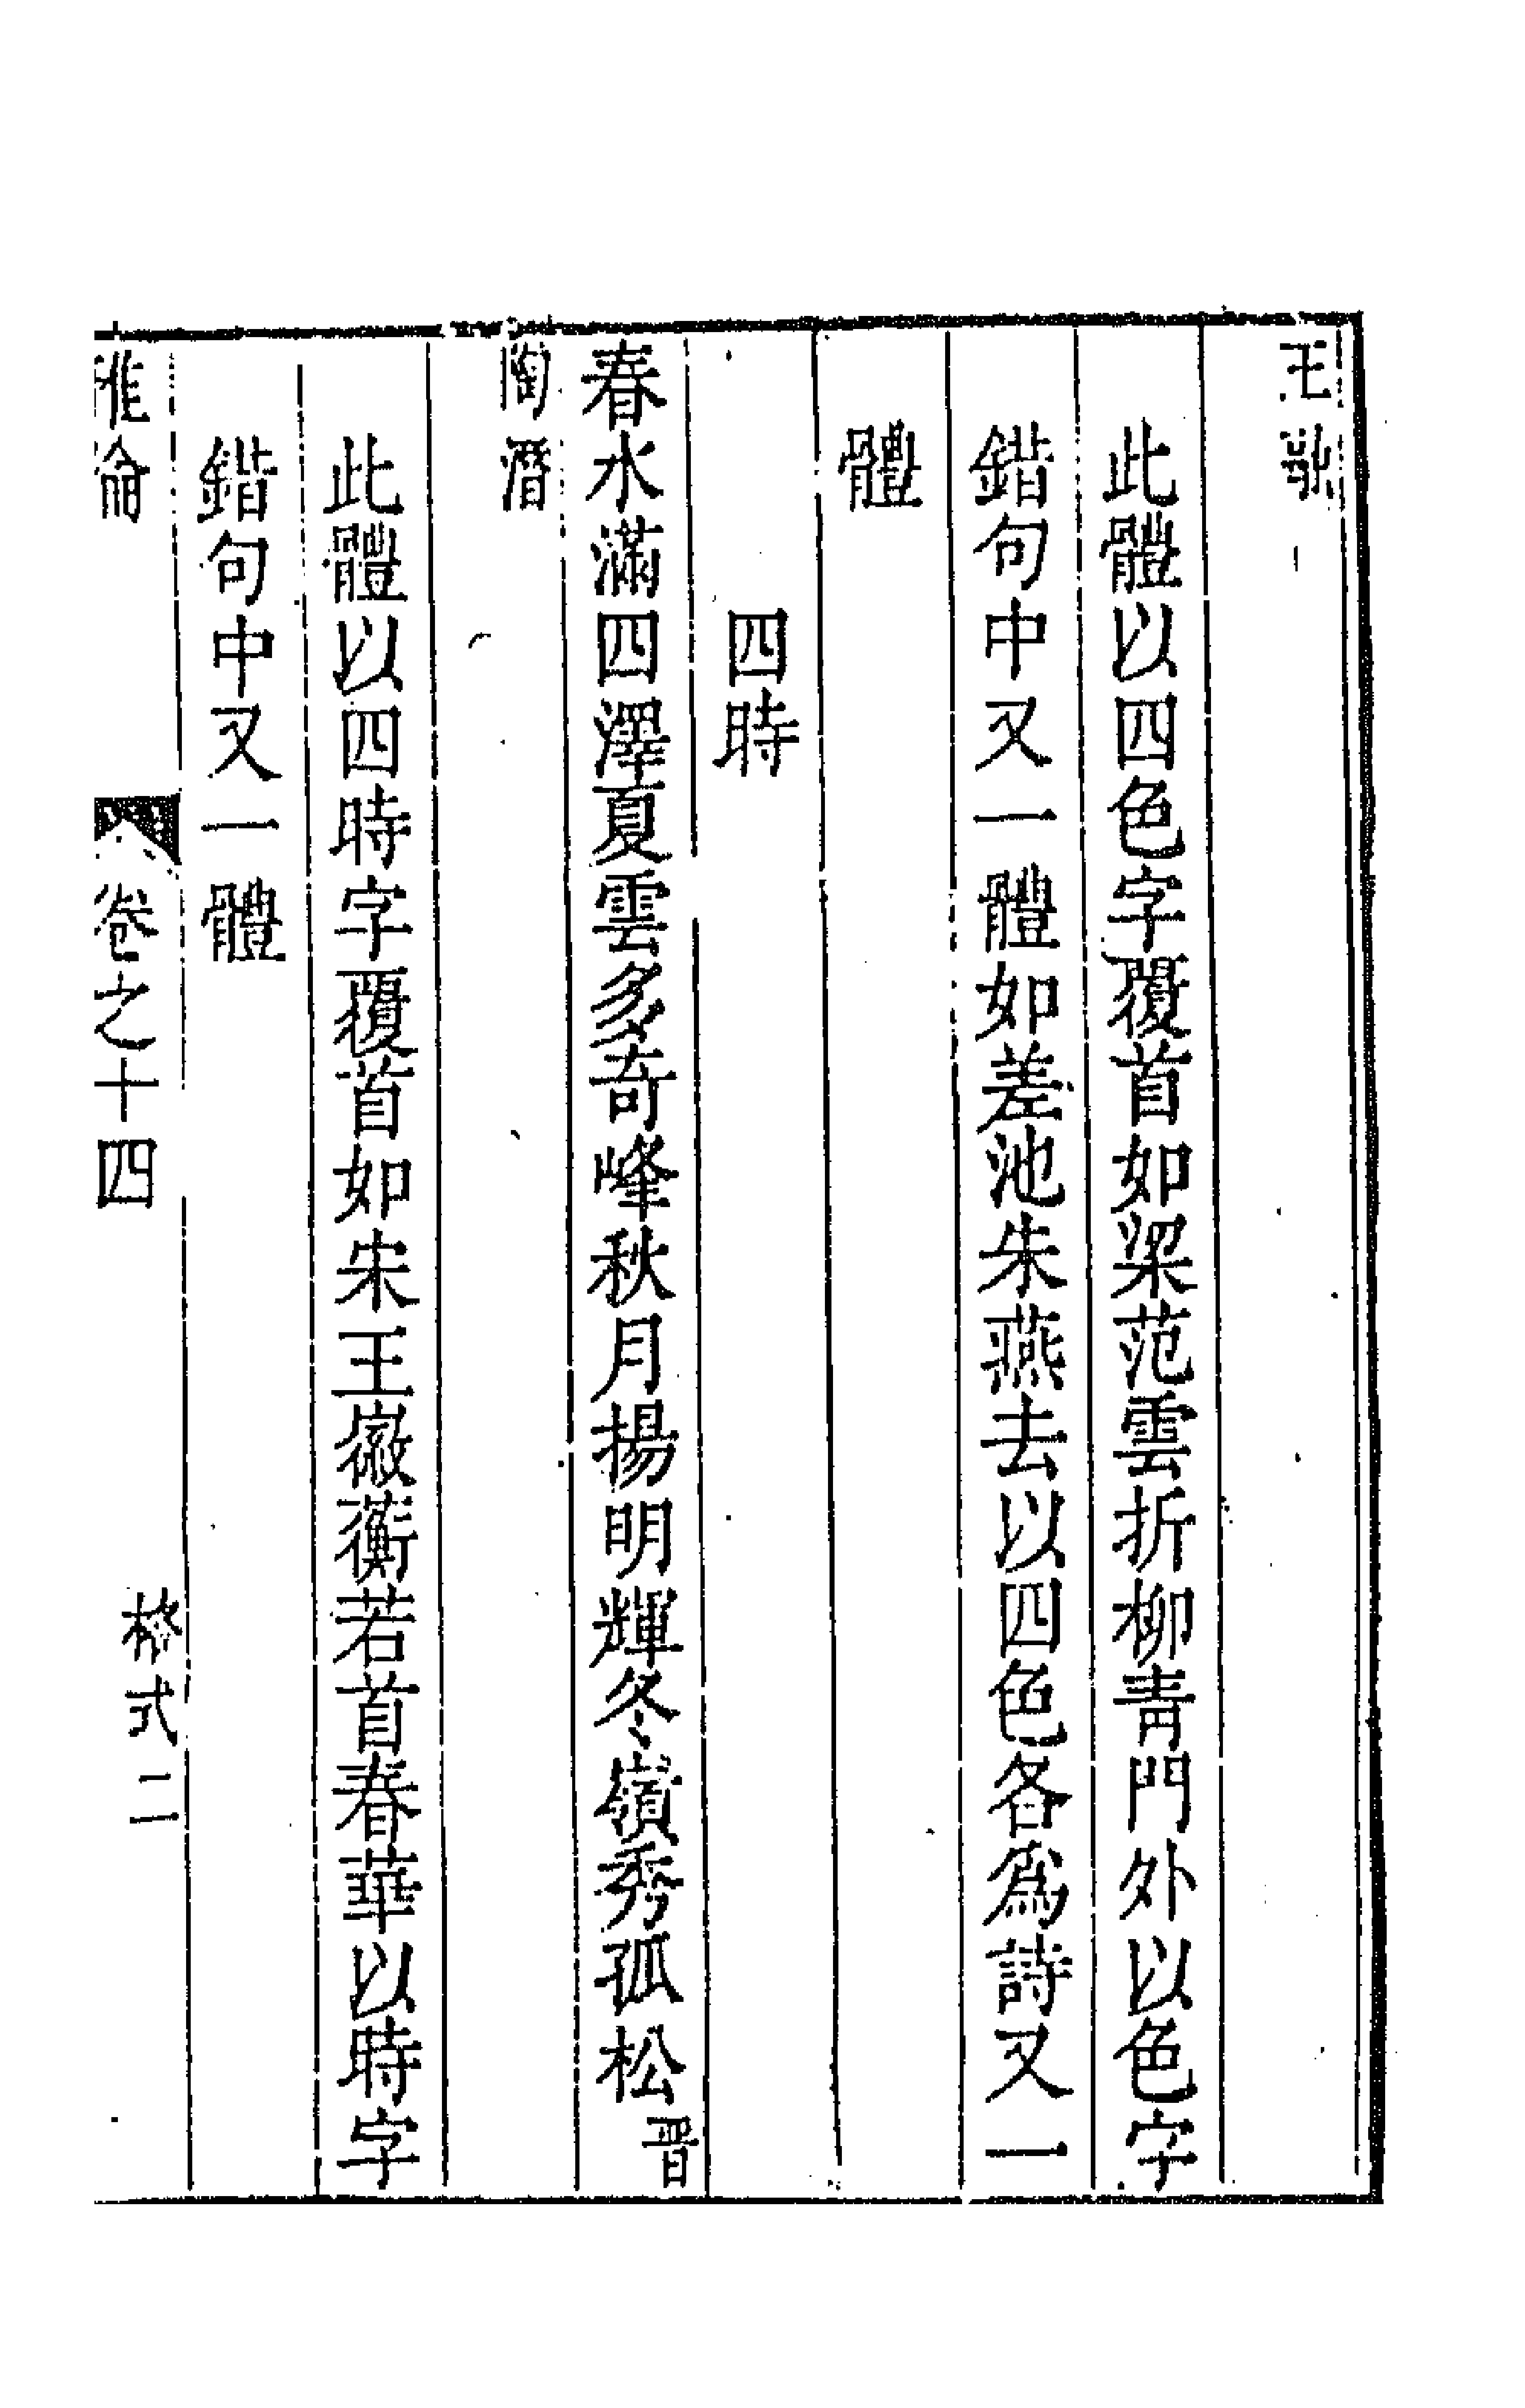 王歙
此體以四色字覆首如梁范雲折柳青門外以色字
錯句中又一體如差池朱燕去以四色各爲詩又一
體
四時
春水滿四澤夏雲多奇峰秋月揚明輝冬嶺秀孤松晉
陶潛
此體以四時字覆首如宋王微蘅若首春華以時字
錯句中又一體
雅倫
卷之十四
格式二